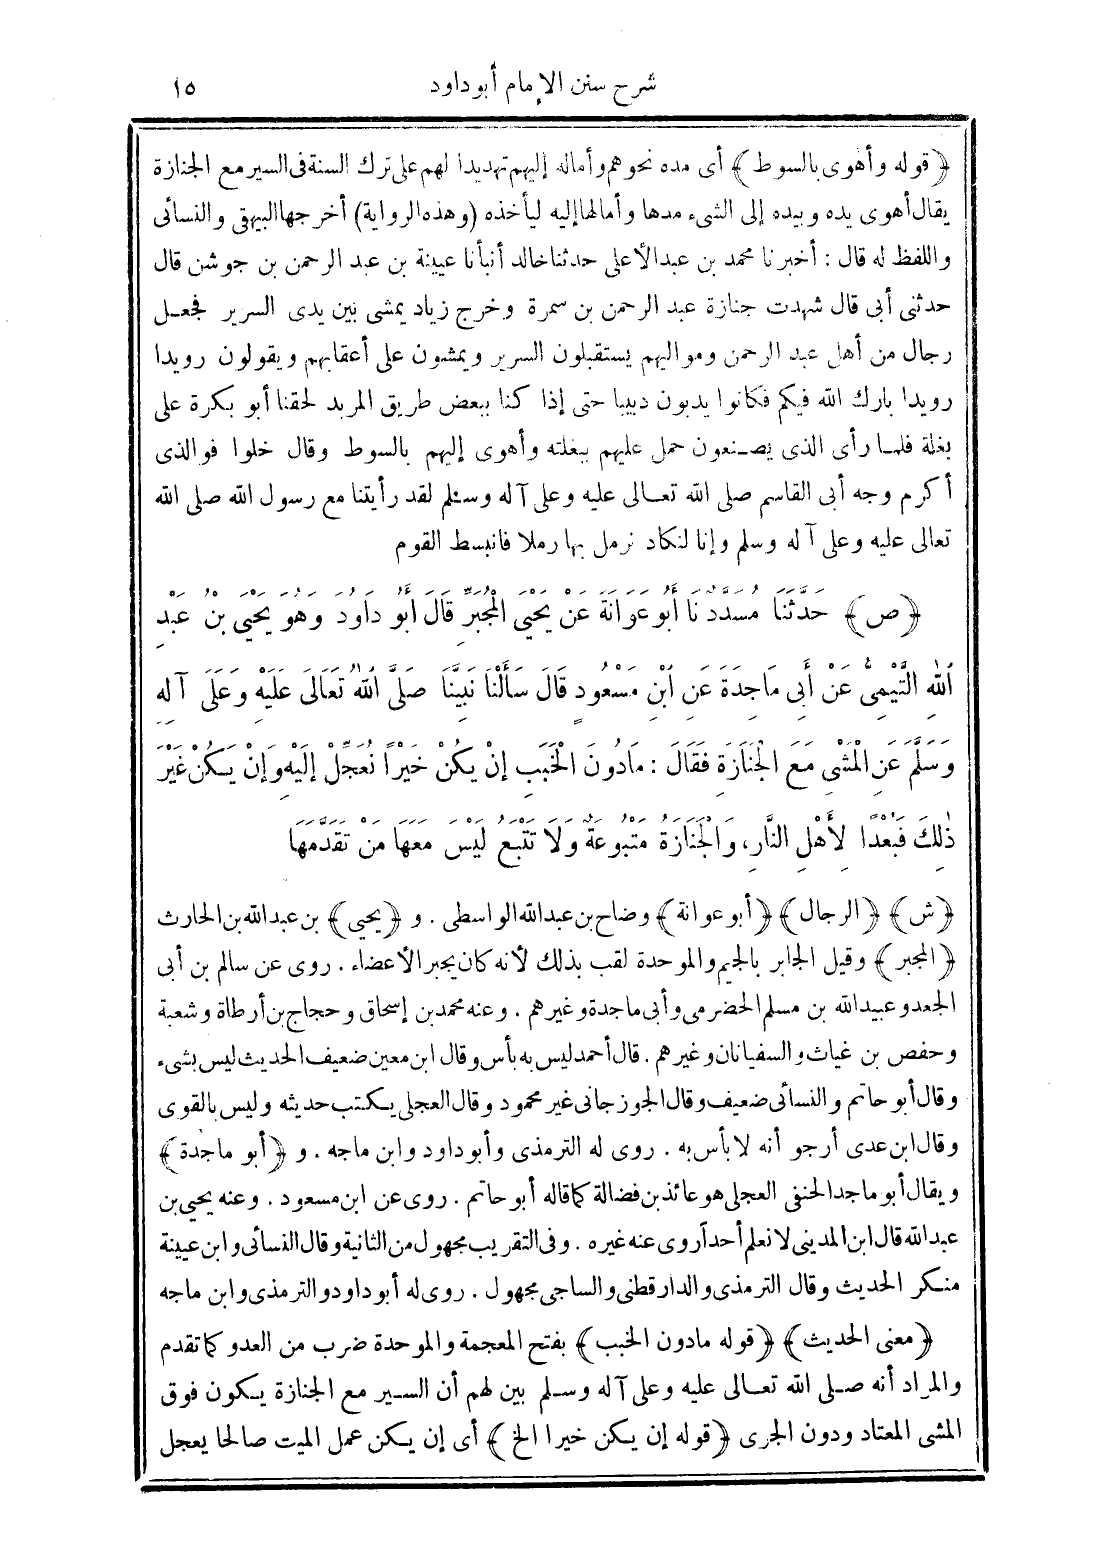 شرح سنن الإمام أبو داود
١٥
﴿قوله وأهوى بالسوط﴾ أى مده نحوهم وأماله إليهم تهديدا لهم على ترك السنة فى السير مع الجنازة
يقال أهوى يده وبيده إلى الشىء مدها وأمالها إليه ليأخذه (وهذه الرواية) أخرجها البيهقى والنسائى
واللفظ له قال : أخبرنا محمد بن عبد الأعلى حدثنا خالد أنبأنا عيينة بن عبد الرحمن بن جوشن قال
حدثنى أبى قال شهدت جنازة عبد الرحمن بن سمرة وخرج زياد يمشى بين يدى السرير فجعل
رجال من أهل عبد الرحمن ومواليهم يستقبلون السرير ويمشون على أعقابهم ويقولون رويدا
رويدا بارك الله فيكم فكانوا يدبون دبيبا حتى إذا كنا ببعض طريق المربد لحقنا أبو بكرة على
بغلة فلما رأى الذى يصنعون حمل عليهم ببغلته وأهوى إليهم بالسوط وقال خلوا فوالذى
أكرم وجه أبى القاسم صلى الله تعالى عليه وعلى آله وسلم لقد رأيتنا مع رسول الله صلى الله
تعالى عليه وعلى آله وسلم وإنا لنكاد نرمل بها رملا فانبسط القوم
﴿ص﴾ حَدَّثَنَا مُسَدَّدٌ نَا أَبُو عَوَانَةَ عَنْ يَحْيَى الْمُجَبِّرِ قَالَ أَبُو دَاوُدَ وَهُوَ يَحْيَى بْنُ عَبْدِ
اللهِ التَّيْمِىُّ عَنْ أَبِى مَاجِدَةَ عَنِ ابْنِ مَسْعُودٍ قَالَ سَأَلْنَا نَبِيَّنَا صَلَّى اللهُ تَعَالَى عَلَيْهِ وَعَلَى آلِهِ
وَسَلَّمَ عَنِ الْمَشْىِ مَعَ الْجَنَازَةِ فَقَالَ : مَادُونَ الْخَبَبِ إِنْ يَكُنْ خَيْرًا تُعَجَّلْ إِلَيْهِ وَإِنْ يَكُنْ غَيْرَ
ذٰلِكَ فَبُعْدًا لِأَهْلِ النَّارِ، وَالْجَنَازَةُ مَتْبُوعَةٌ وَلَا تَتْبَعُ لَيْسَ مَعَهَا مَنْ تَقَدَّمَهَا
﴿ش﴾ ﴿الرجال﴾ ﴿أبو عوانة﴾ وضاح بن عبد الله الواسطى . و ﴿يحيى﴾ بن عبد الله بن الحارث
﴿المجبر﴾ وقيل الجابر بالجيم والموحدة لقب بذلك لأنه كان يجبر الأعضاء . روى عن سالم بن أبى
الجعد وعبيد الله بن مسلم الحضرمى وأبى ماجدة وغيرهم . وعنه محمد بن إسحاق وحجاج بن أرطاة وشعبة
وحفص بن غياث والسفيانان وغيرهم . قال أحمد ليس به بأس وقال ابن معين ضعيف الحديث ليس بشىء
وقال أبو حاتم والنسائى ضعيف وقال الجوزجانى غير محمود وقال العجلى يكتب حديثه وليس بالقوى
وقال ابن عدى أرجو أنه لا بأس به . روى له الترمذى وأبو داود وابن ماجه . و ﴿أبو ماجدة﴾
ويقال أبو ماجد الحنفى العجلى هو عائذ بن فضالة كما قاله أبو حاتم . روى عن ابن مسعود . وعنه يحيى بن
عبد الله قال ابن المدينى لا نعلم أحداً روى عنه غيره . وفى التقريب مجهول من الثانية وقال النسائى وابن عيينة
منكر الحديث وقال الترمذى والدارقطنى والساجى مجهول . روى له أبو داود والترمذى وابن ماجه
﴿معنى الحديث﴾ ﴿قوله مادون الخبب﴾ بفتح المعجمة والموحدة ضرب من العدو كما تقدم
والمراد أنه صلى الله تعالى عليه وعلى آله وسلم بين لهم أن السير مع الجنازة يكون فوق
المشى المعتاد ودون الجرى ﴿قوله إن يكن خيرا الخ﴾ أى إن يكن عمل الميت صالحا يعجل